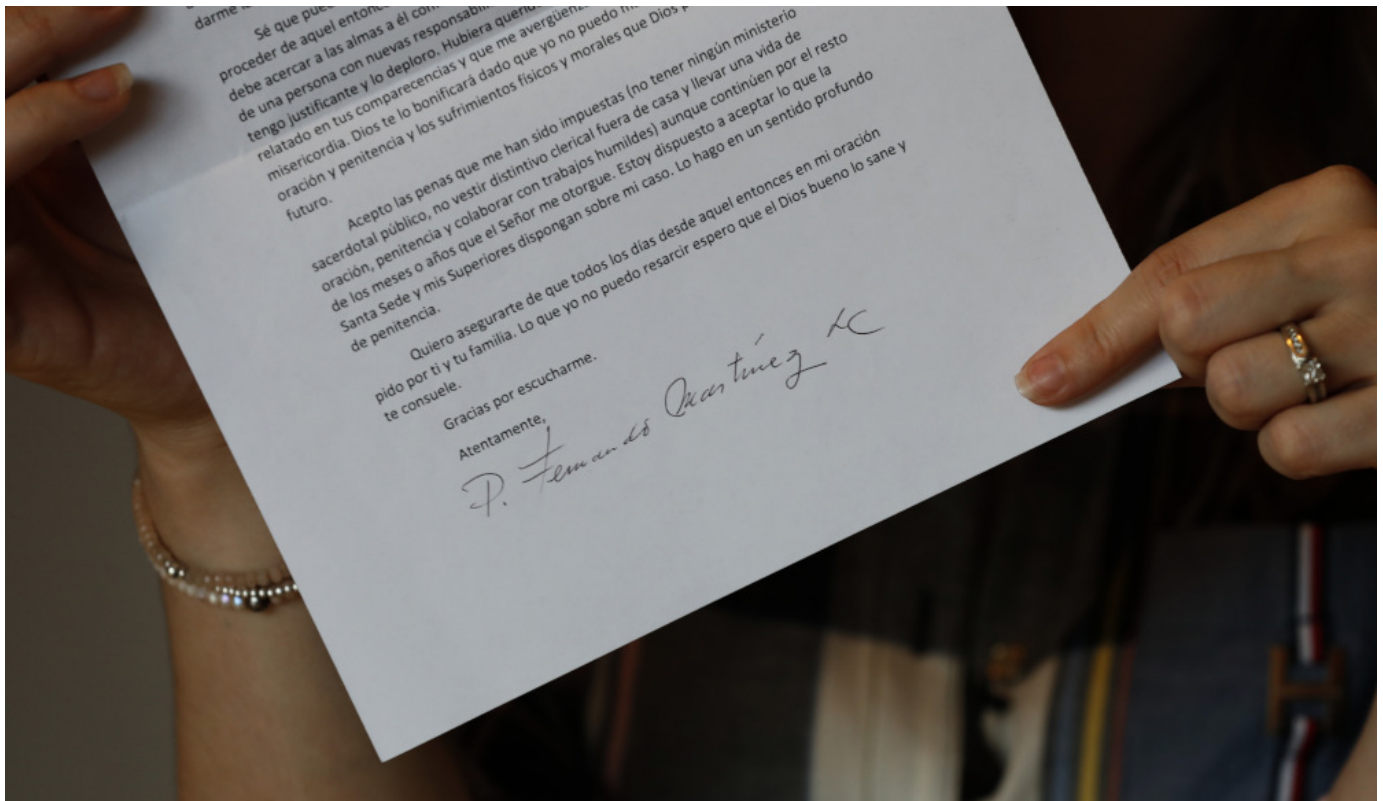 darme
Sé que
proceder de aquel
debe acercar a las almas a él
de una persona con nuevas
tengo justificante y lo deploro. Hubiera
relatado en tus comparecencias y que me
misericordia. Dios te lo bonificará dado que yo no puedo
oración y penitencia y los sufrimientos físicos y morales que Dios
futuro.
Acepto las penas que me han sido impuestas (no tener ningún ministerio
sacerdotal público, no vestir distintivo clerical fuera de casa y llevar una vida de
oración, penitencia y colaborar con trabajos humildes) aunque continúen por el resto
de los meses o años que el Señor me otorgue. Estoy dispuesto a aceptar lo que la
Santa Sede y mis Superiores dispongan sobre mi caso. Lo hago en un sentido profundo
de penitencia.
Quiero asegurarte de que todos los días desde aquel entonces en mi oración
pido por ti y tu familia. Lo que yo no puedo resarcir espero que el Dios bueno lo sane y
te consuele.
Gracias por escucharme.
Atentamente,
P. Fernando Martínez LC
H